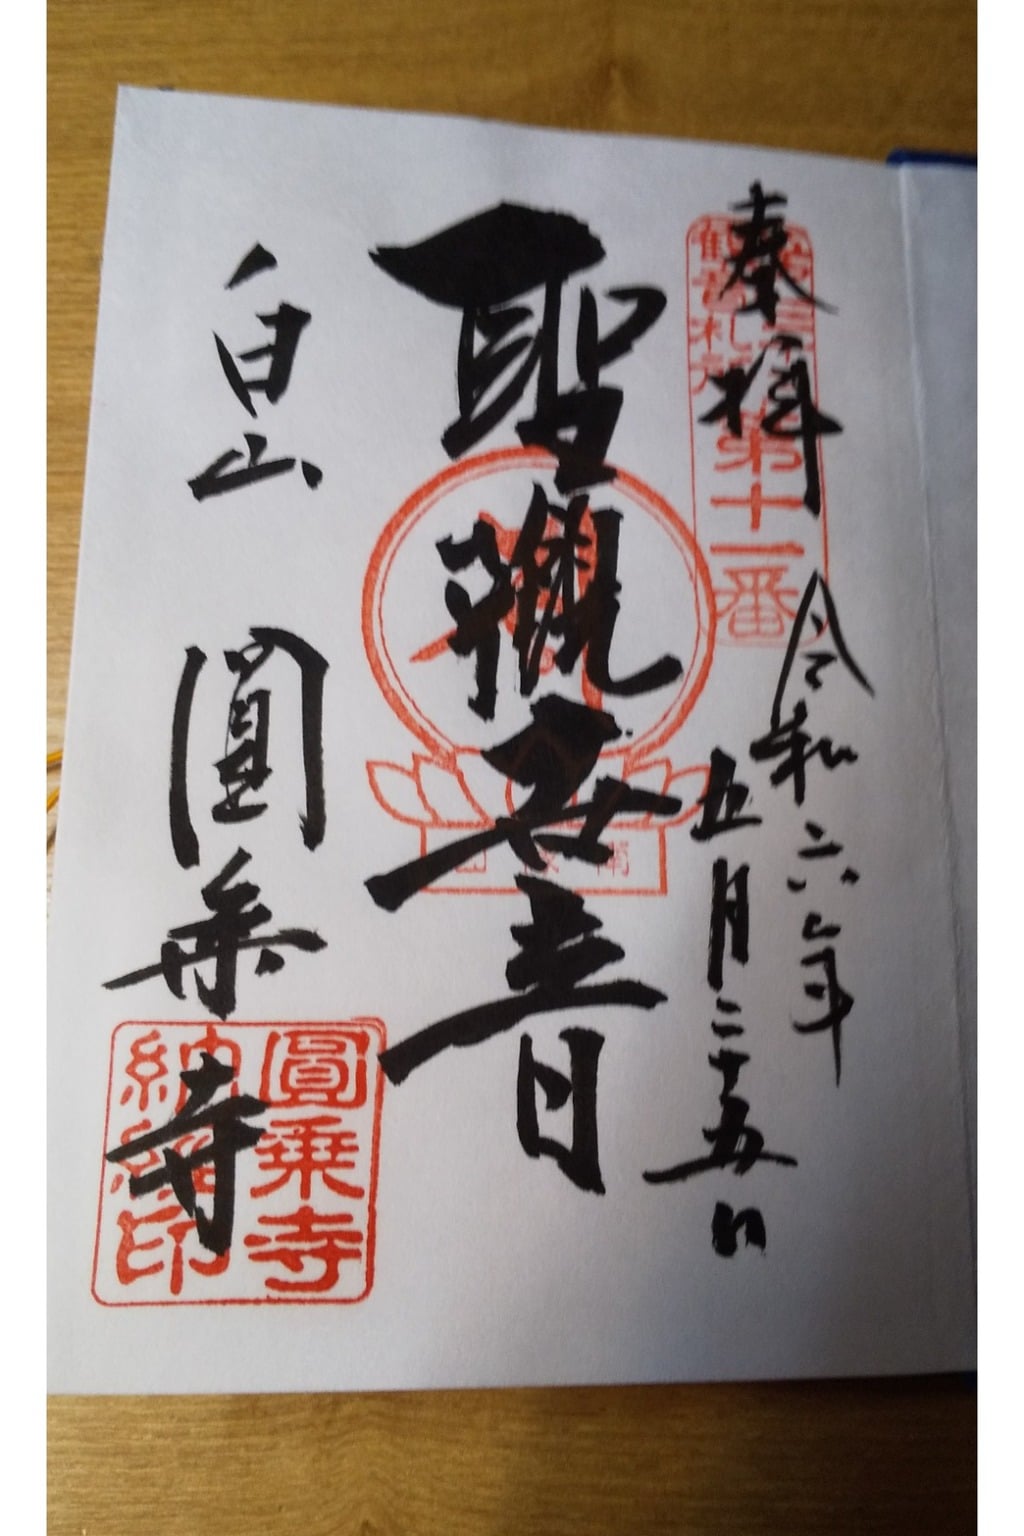 奉拝
令和六年
五月二十五日
第十一番
観音札所
聖観世音
白山 圓乗寺
圓乗寺
納経印